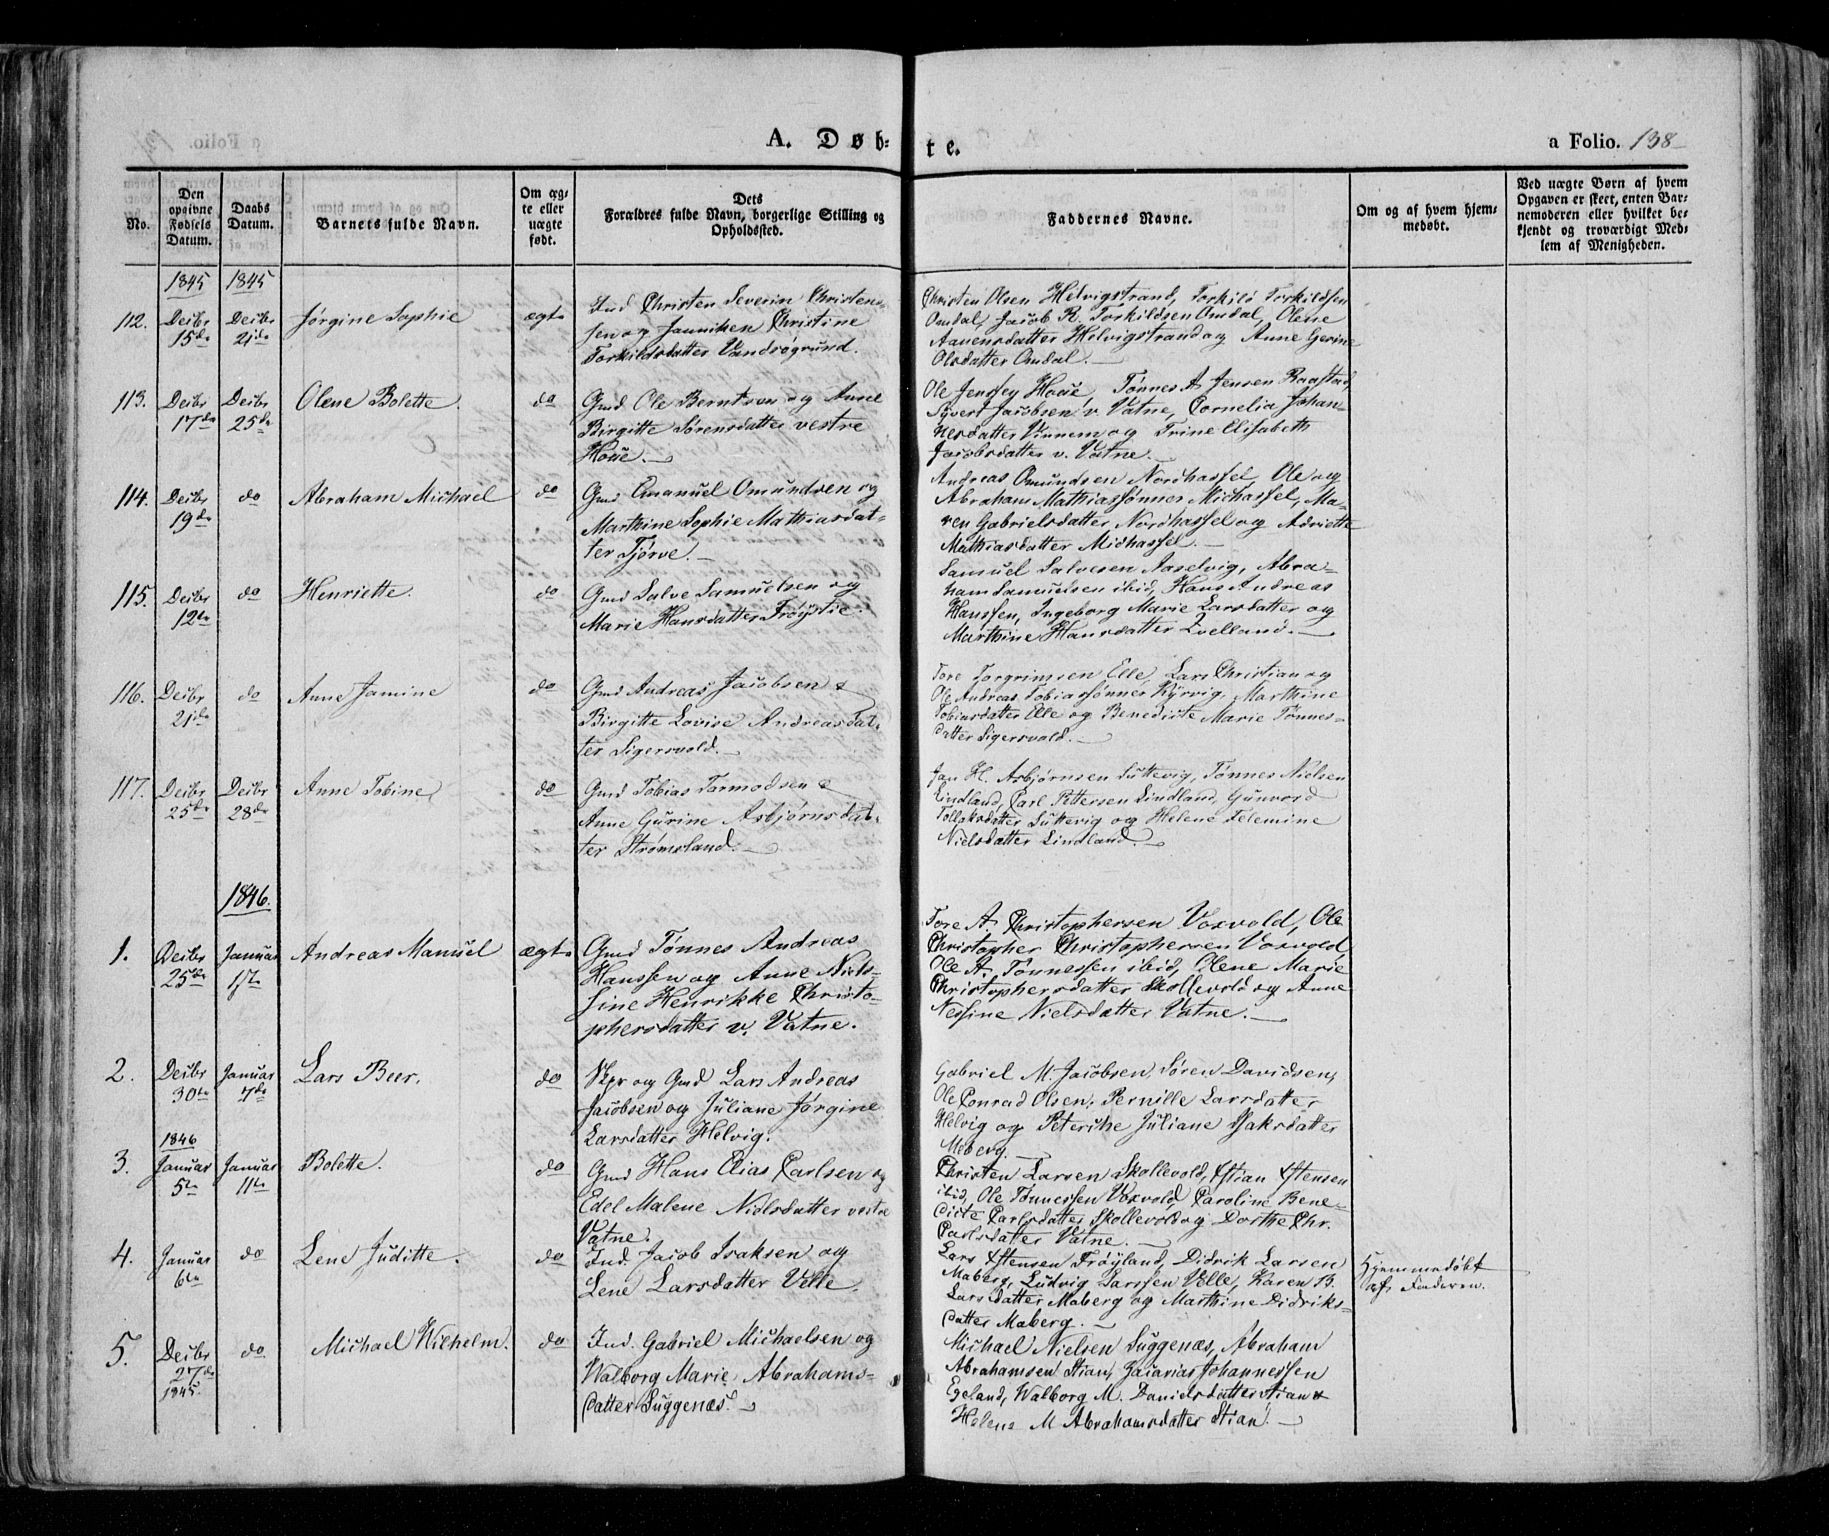 A. Døb-te.
a Folio. 138
No.
Den opgivne Fødsels Datum.
Daabs Datum.
Barnets fulde Navn.
Om ægte eller uægte født.
Dets Forældres fulde Navn, borgerlige Stilling og Opholdssted.
Faddernes Navne.
Om og af hvem hjemmedøbt.
Ved uægte Børn af hvem Opgaven er skeet, enten Barnemoderen eller hvilket bekjendt og troværdigt Medlem af Menigheden.
1845 1845
112. Decbr 15de Decbr 21de Jørgine Sophie ægte
Ind Christen Severin Christen-
sen og Janniken Christine
Torkildsdatter Vandrøgrund.
Christen Olsen Helvigstrand, Torkild Torkildsen
Omdal, Jacob R. Torkildsen Omdal, Olene
Aanensdatter Helvigstrand og Anne Gerine
Olsdatter Omdal.
113. Decbr 17de Decbr 25de Olene Bolette. do
Gmd Ole Berntsen og Anne
Birgitte Sørensdatter vestre
Houe.
Ole Jensen Houe, Tønnes A. Jensen Raastad,
Syvert Jacobsen v. Vatne, Cornelia Johan-
nesdatter Vinnem og Trine Elisabeth
Jacobsdatter v. Vatne.
114. Decbr 19de do Abraham Michael do
Gmd Emanuel Omundsen og
Marthine Sophie Mathiasdat-
ter Tjørve.
Andreas Omundsen Nordhassel, Ole og
Abraham Mathiassønner Midhassel, Ma-
ren Gabrielsdatter Nordhassel og Adriette
Mathiasdatter Midhassel.
115. Decbr 12te do Henriette. do
Gmd Salve Samuelsen og
Marie Hansdatter Frøystie.
Samuel Salvesen Naselvig, Abra-
ham Samuelsen ibid, Hans Andreas
Hanssen, Ingeborg Marie Larsdatter og
Marthine Hansdatter Qvelland.
116. Decbr 21de do Anne Jamine do
Gmd Andreas Jacobsen &
Birgitte Lovise Andreasdat-
ter Sigersvold.
Tore Torgrimsen Elle, Lars Christian og
Ole Andreas Tobiassønner Kyrvig, Marthine
Tobiasdatter Elle og Benedicte Marie Tønnes-
datter Sigersvold.
117. Decbr 25de Decbr 28de Anne Tobine do
Gmd Tobias Tarmodsen &
Anne Gurine Asbjørnsdat-
ter Strømsland.
Jan H. Asbjørnsen Luttevig, Tønnes Nielsen
Lindland, Carl Pettersen Lindland, Gunvord
Tollaksdatter Luttevig og Helene Telemine
Nielsdatter Lindland.
1846.
1. Decbr 25de Januar 1ste Andreas Manuel ægte
Gmd Tønnes Andreas
Hanssen og Anne Niels-
sine Henrikke Christo-
phersdatter v. Vatne.
Tore A. Christophersen Voxvold, Ole
Christopher Christophersen Voxvold,
Ole A. Tønnessen ibid, Olene Marie
Christophersdatter Skollevold og Anne
Nessine Nielsdatter Vatne.
2. Decbr 30te Januar 7de Lars Beer. do
Skpr og Gmd Lars Andreas
Jacobsen og Juliane Jørgine
Larsdatter Helvig.
Gabriel M. Jacobsen, Søren Davidsen,
Ole Conrad Olsen, Pernille Larsdatter
Helvig og Peterike Juliane Isaksdatter
Meberg.
1846
3. Januar 5te Januar 11te Bolette. do
Gmd Hans Elias Carlsen og
Edel Malene Nielsdatter vestre
Vatne.
Christen Larsen Skollevold, Stian Stensen
ibid, Ole Tønnessen Voxvold, Caroline Bene-
dicte Carlsdatter Skollevold og Dorthe Chr.
Carlsdatter Vatne.
4. Januar 6te do Lene Juditte. do
Ind. Jacob Isaksen og
Lene Larsdatter Velle.
Lars Stensen Frøyland, Didrik Larsen
Maberg, Ludvig Larssen Velle, Karen B.
Larsdatter Maberg og Marthine Didriks-
datter Maberg.
Hjemmedøbt
af Faderen.
5. Decbr 27de 1845. do Michael Wilhelm. do
Ind. Gabriel Michaelsen og
Walborg Marie Abrahams-
datter Suggenæs.
Michael Nielsen Suggenæs, Abraham
Abrahamsen Stian, Zacarias Johannessen
Egeland, Walborg M. Danielsdatter Stian &
Helene M. Abrahamsdatter Stian.